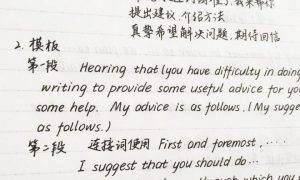 我来帮你
提出建议,介绍方法
真挚希望解决问题,期待回信
2. 模板
第一段 Hearing that (you have difficulty in doing
writing to provide some useful advice for you
some help. My advice is as follows. (My sugge
as follows.)
第二段 连接词使用 First and foremost, .....
I suggest that you should do...
through which you